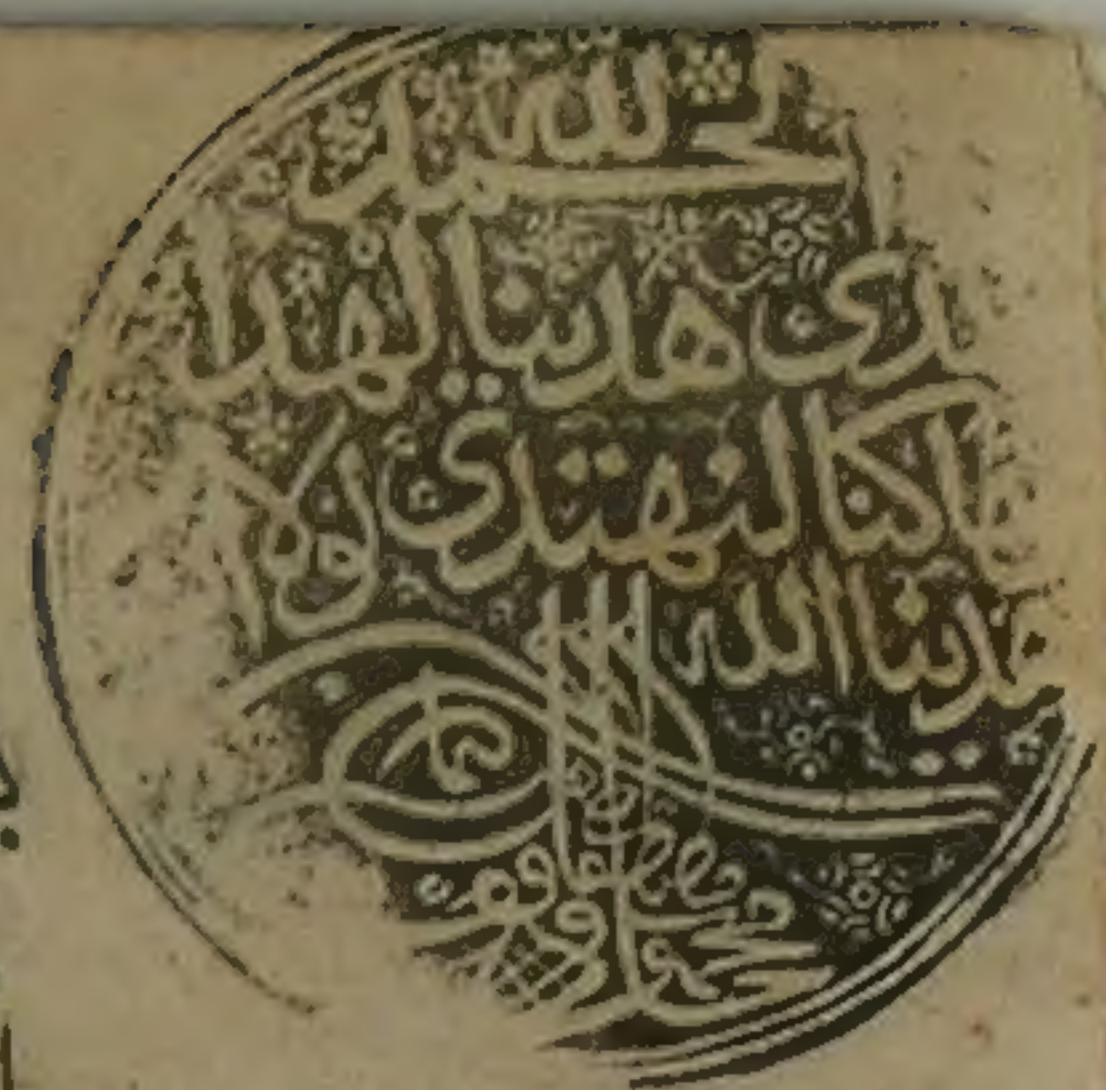 الحمد لله
الذى هدينا لهذا
وما كنا لنهتدي لولا ا
هدينا الله
محمود